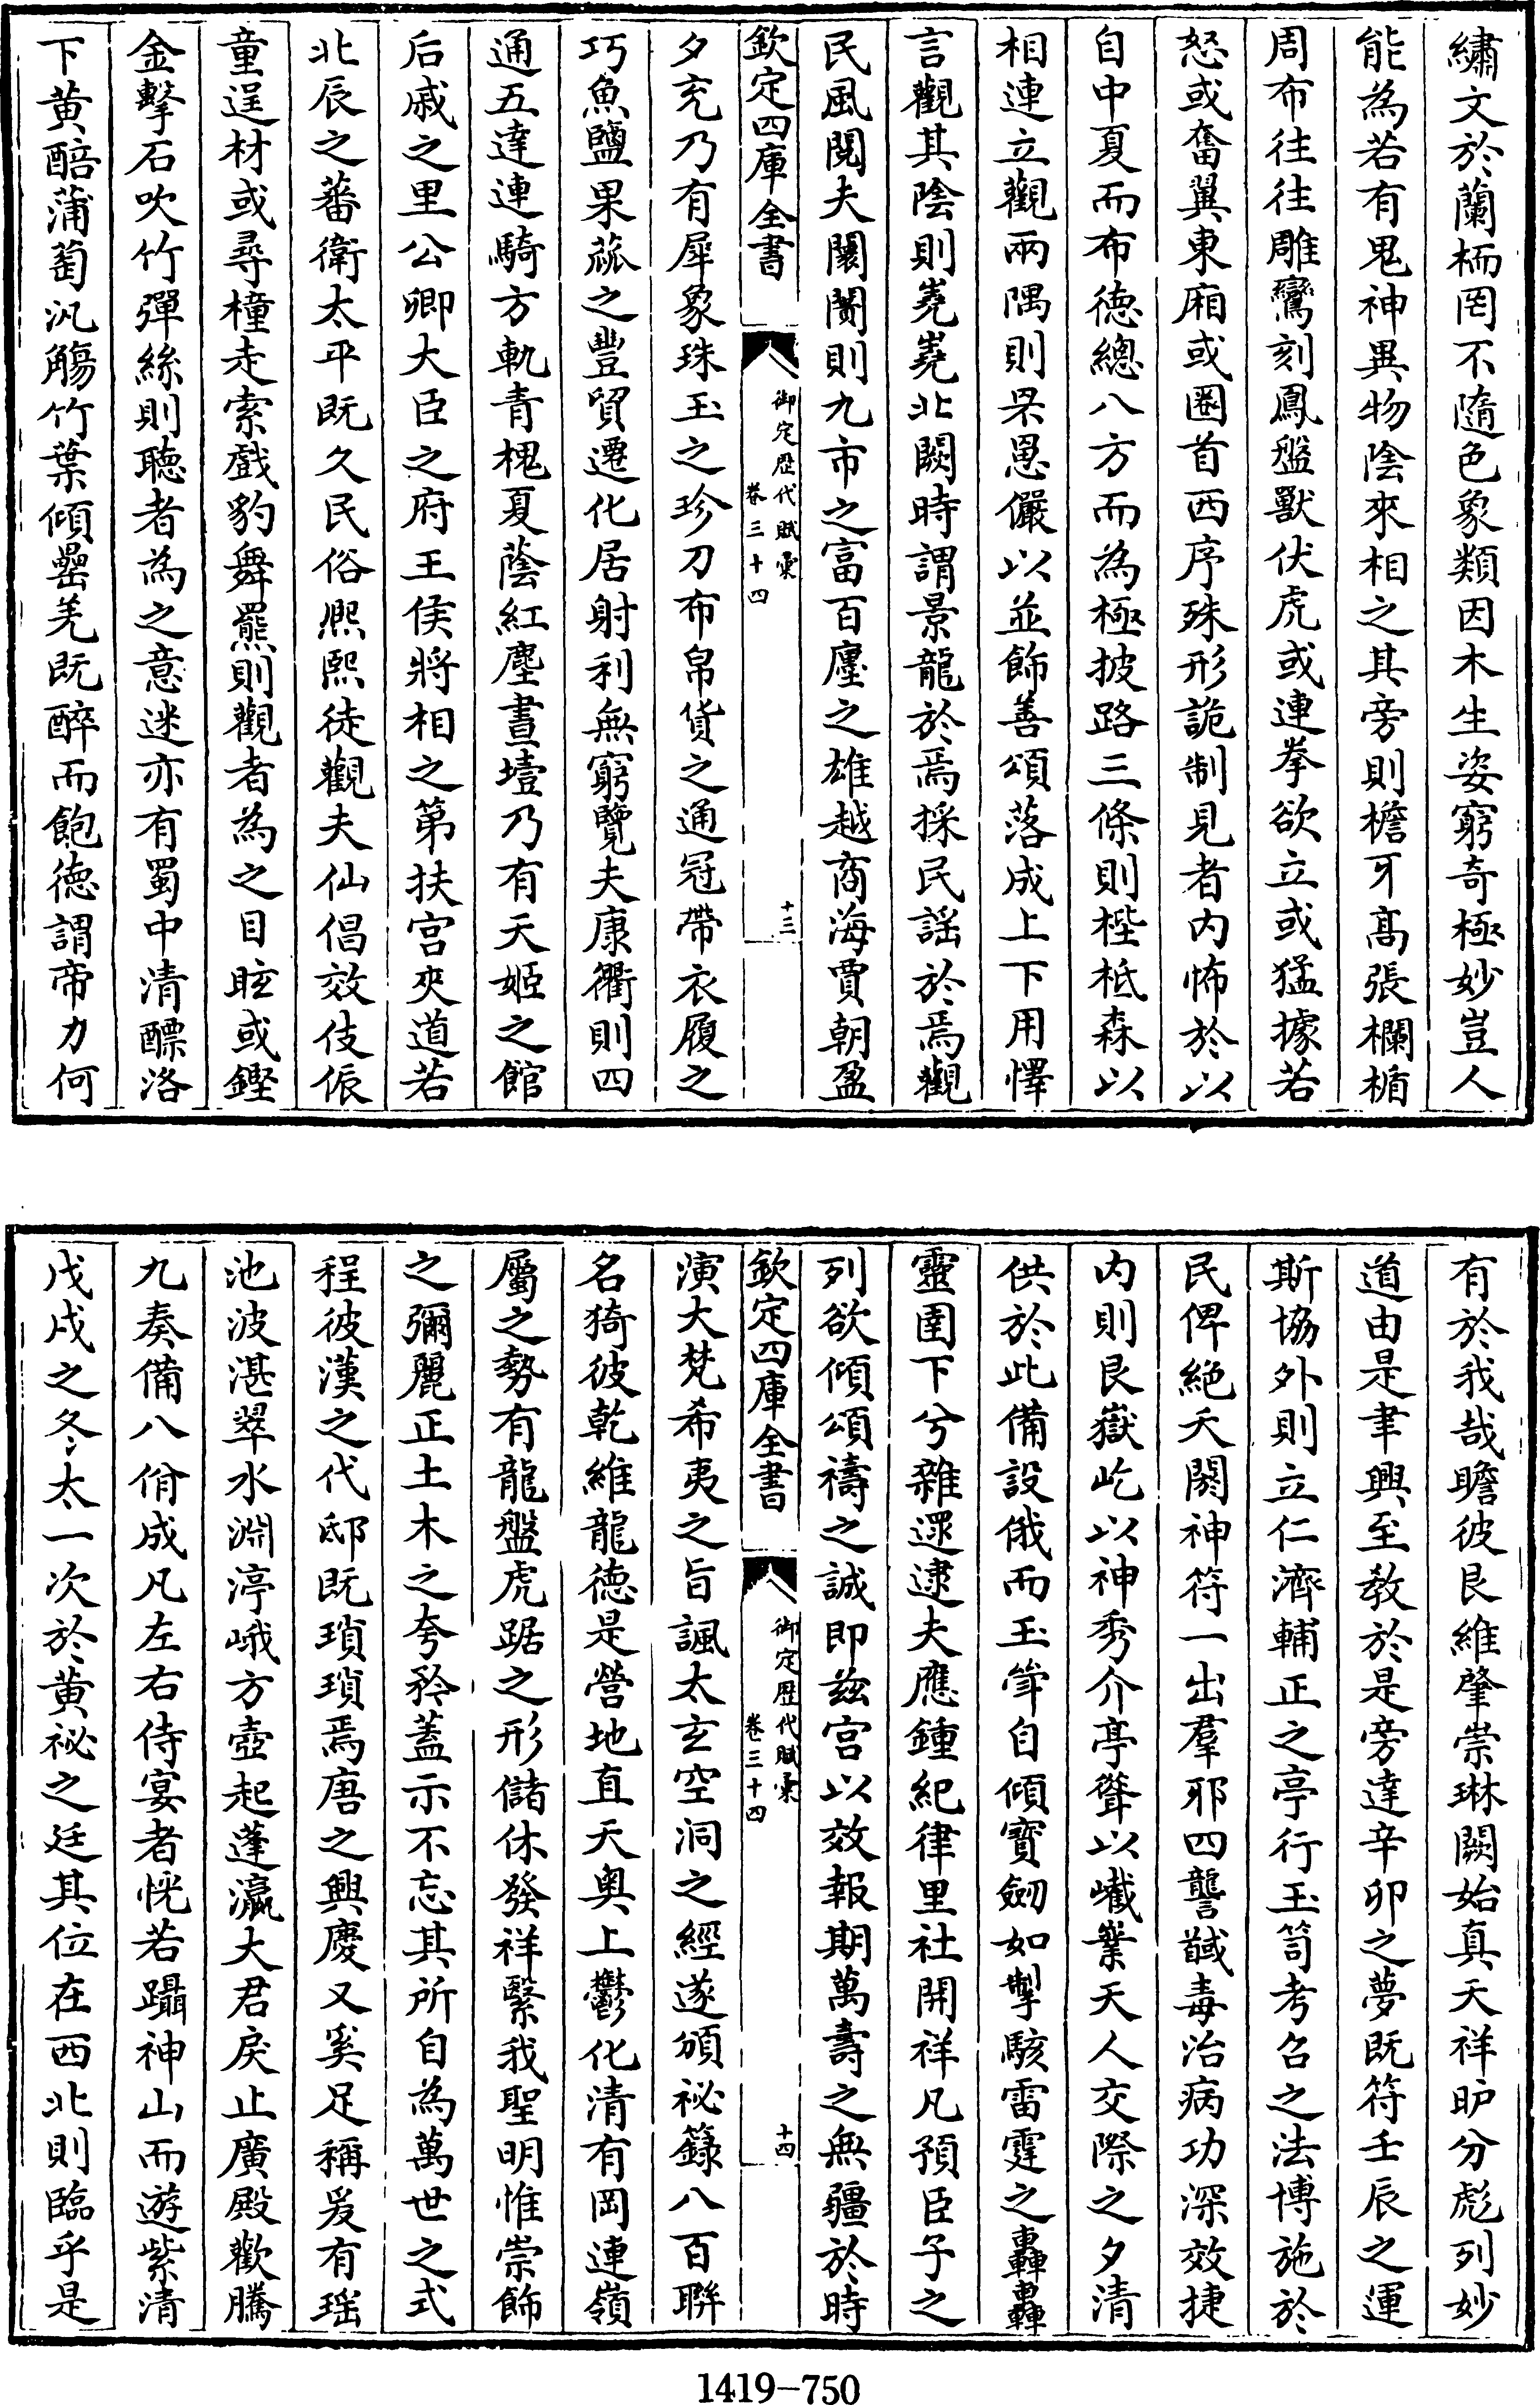 繡文於蘭桷罔不隨色象類因木生姿窮奇極妙豈人
能為若有鬼神異物陰來相之其旁則檐牙髙張欄楯
周布往往雕鸞刻鳳盤獸伏虎或連拳欲立或猛據若
怒或奮翼東廂或圈首西序殊形詭制見者内怖於以
自中夏而布徳總八方而為極披路三條則梐柢森以
相連立觀兩隅則罘罳儼以並飾善頌落成上下用懌
言觀其陰則嶤嶤北闕時謂景龍於焉採民謠於焉觀
民風閱夫闤闠則九市之富百廛之雄越商海賈朝盈
欽定四庫全書
御定歴代賦彚
卷三十四
十三
夕充乃有犀象珠玉之珍刀布帛貨之通冠帶衣履之
巧魚鹽果蓏之豐貿遷化居射利無窮覽夫康衢則四
通五達連騎方軌青槐夏蔭紅塵晝壒乃有天姬之館
后戚之里公卿大臣之府王侯將相之第扶宫夾道若
北辰之蕃衛太平既久民俗熈熙徒觀夫仙倡效伎侲
童逞材或尋橦走索戲豹舞羆則觀者為之目眩或鏗
金擊石吹竹彈絲則聴者為之意迷亦有蜀中清醥洛
下黄醅蒲萄汎觴竹葉傾罍羌既醉而飽徳謂帝力何
有於我哉瞻彼艮維肇崇琳闕始真天祥昈分彪列妙
道由是聿興至教於是旁達辛卯之夢既符壬辰之運
斯協外則立仁濟輔正之亭行玉笥考召之法博施於
民俾絶夭閼神符一出羣邪四讋馘毒治病功深效捷
内則艮嶽屹以神秀介亭聳以巀嶪天人交際之夕清
供於此備設俄而玉斚自傾寳劒如掣駭雷霆之轟轟
靈圉下兮雜遝逮夫應鍾紀律里社開祥凡預臣子之
列欲傾頌禱之誠即兹宫以效報期萬壽之無疆於時
欽定四庫全書
御定歴代賦彚
卷三十四
十四
演大梵希夷之旨諷太玄空洞之經遂頒祕籙八百聨
名猗彼乾維龍徳是營地直天奥上鬱化清有岡連嶺
屬之勢有龍盤虎踞之形儲休發祥繄我聖明惟崇飾
之彌麗正土木之夸矜蓋示不忘其所自為萬世之式
程彼漢之代邸既瑣瑣焉唐之興慶又奚足稱爰有瑶
池波湛翠水淵渟峨方壺起蓬瀛大君戾止廣殿歡騰
九奏備八佾成凡左右侍宴者恍若躡神山而遊紫清
戊戌之冬太一次於黄祕之廷其位在西北則臨乎是
1419-750